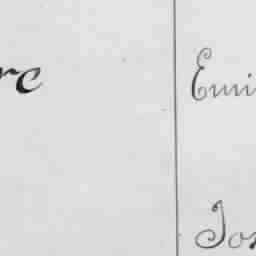 rc
Emi
Jos